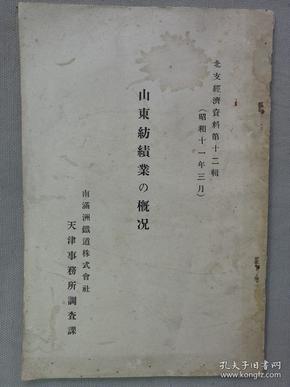 北支經濟資料第十二輯
(昭和十一年三月)
山東紡績業の概況
南滿洲鐵道株式會社
天津事務所調査課
孔夫子旧书网